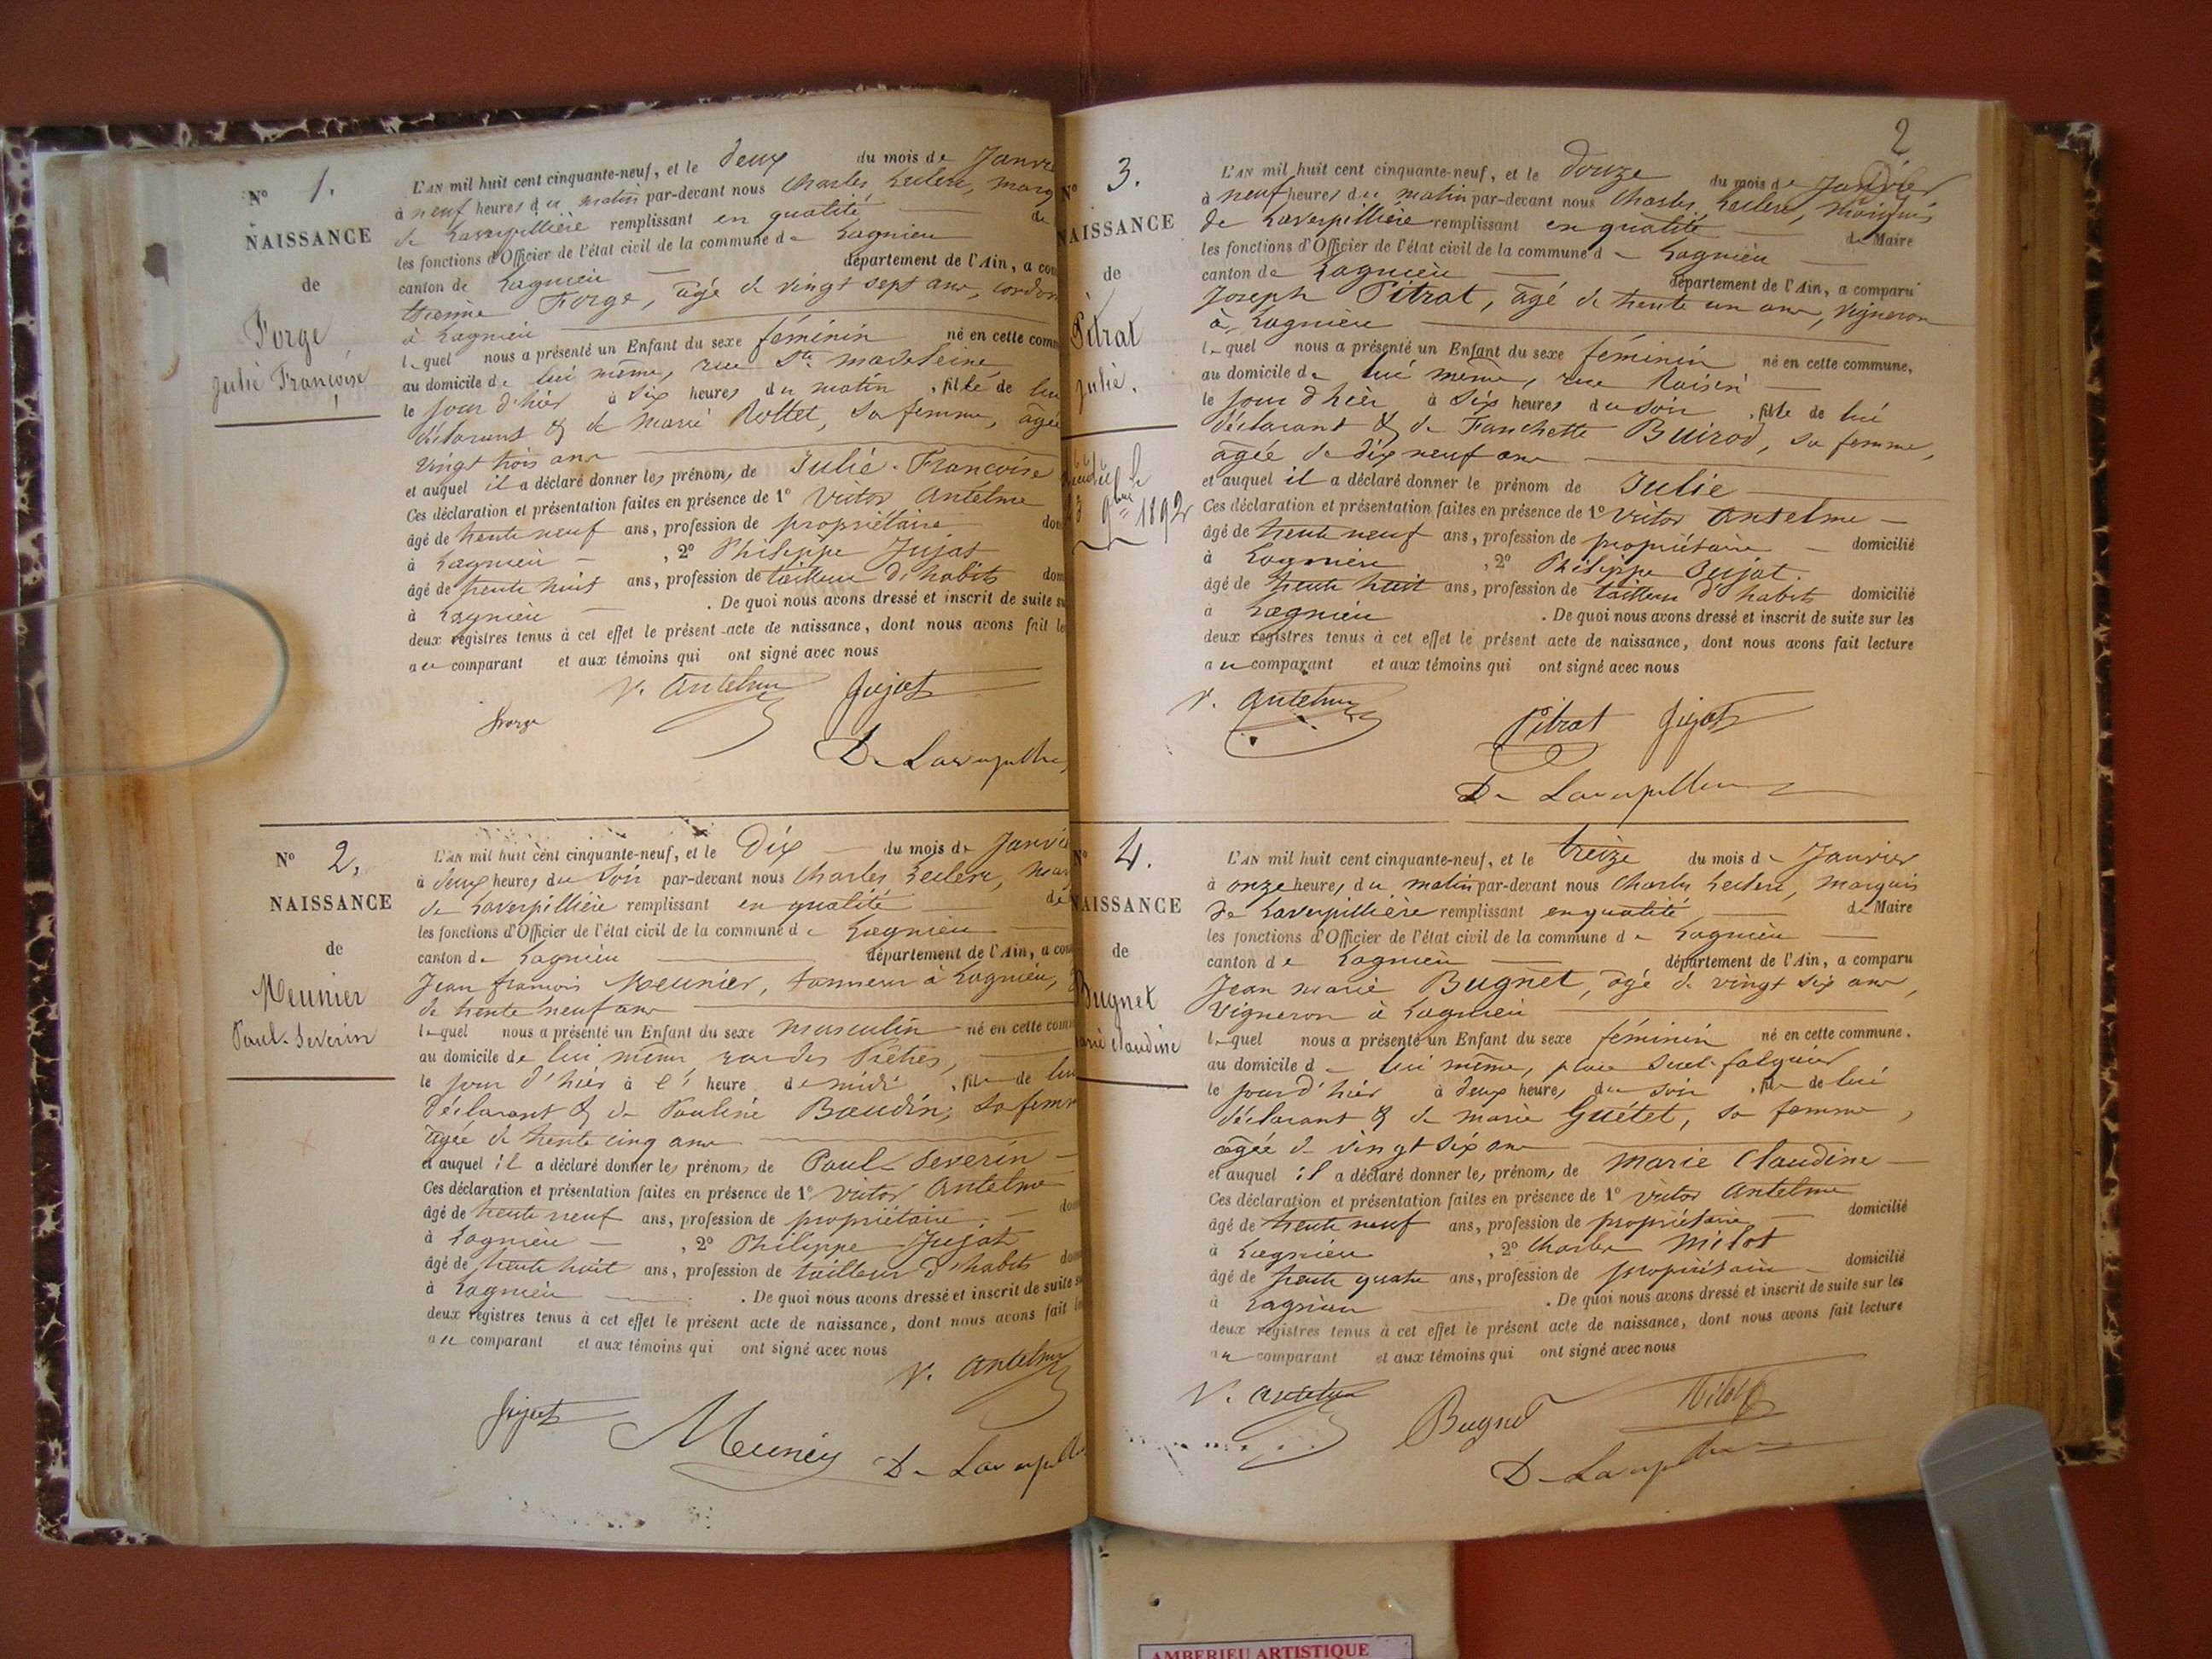 N° 1.
NAISSANCE
de
Forge
Julie Françoise
L'AN mil huit cent cinquante-neuf, et le deux du mois de Janvie
à neuf heures du matin par-devant nous Charles Leclerc, marq
de Laverpillière remplissant en qualité de
les fonctions d'Officier de l'état civil de la commune de Lagnieu
canton de Lagnieu département de l'Ain, a com
Forge, âgé de vingt sept ans, cordon
à Lagnieu
lequel nous a présenté un Enfant du sexe féminin né en cette comm
au domicile de lui même, rue Ste madeleine
le jour d'hier à six heures du matin, fille de lui
déclarant & de Marie Rollet, sa femme, âgée
vingt trois ans
et auquel il a déclaré donner les prénoms de Julie-Françoise
Ces déclaration et présentation faites en présence de 1° Victor Antelme
âgé de trente neuf ans, profession de propriétaire dom
à Lagnieu, 2° Philippe Jujat
âgé de trente huit ans, profession de tailleur d'habits dom
à Lagnieu. De quoi nous avons dressé et inscrit de suite su
deux registres tenus à cet effet le présent acte de naissance, dont nous avons fait le
au comparant et aux témoins qui ont signé avec nous
V. Antelme Jujat
Forge
De Laverpilliè
N° 2.
NAISSANCE
de
Meunier
Paul-Severin
L'AN mil huit cent cinquante-neuf, et le Dix du mois de Janvie
à deux heures du soir par-devant nous Charles Leclerc, mar
de Laverpillière remplissant en qualité de
les fonctions d'Officier de l'état civil de la commune de Lagnieu
canton de Lagnieu département de l'Ain, a com
Jean françois Meunier, tanneur à Lagnieu,
de trente neuf ans
lequel nous a présenté un Enfant du sexe masculin né en cette comm
au domicile de lui même, rue des Prêtres,
le jour d'hier à heure de midi, fils de lui
déclarant & de Pauline Baudin, sa femm
âgée de trente cinq ans
et auquel il a déclaré donner les prénoms de Paul-Severin
Ces déclaration et présentation faites en présence de 1° Victor Antelme
âgé de trente neuf ans, profession de propriétaire dom
à Lagnieu, 2° Philippe Jujat
âgé de trente huit ans, profession de tailleur d'habits dom
à Lagnieu. De quoi nous avons dressé et inscrit de suite su
deux registres tenus à cet effet le présent acte de naissance, dont nous avons fait le
au comparant et aux témoins qui ont signé avec nous
V. Antelme
Jujat Meunier De Laverpill
2
N° 3.
NAISSANCE
de
Pitrat
Julie.
9bre 1892
L'AN mil huit cent cinquante-neuf, et le Douze du mois de Janvier
à neuf heures du matin par-devant nous Charles Leclerc, Marquis
de Laverpillière remplissant en qualité de Maire
les fonctions d'Officier de l'état civil de la commune de Lagnieu
canton de Lagnieu département de l'Ain, a comparu
Joseph Pitrat, âgé de trente un ans, vigneron
à Lagnieu
lequel nous a présenté un Enfant du sexe féminin né en cette commune,
au domicile de lui même, rue
le jour d'hier à six heures du soir, fille de lui
déclarant & de Fanchette Buirod, sa femme,
âgée de dix neuf ans
et auquel il a déclaré donner le prénom de Julie
Ces déclaration et présentation faites en présence de 1° Victor Antelme
âgé de trente neuf ans, profession de propriétaire domicilié
à Lagnieu, 2° Philippe Jujat.
âgé de trente huit ans, profession de tailleur d'habits domicilié
à Lagnieu. De quoi nous avons dressé et inscrit de suite sur les
deux registres tenus à cet effet le présent acte de naissance, dont nous avons fait lecture
au comparant et aux témoins qui ont signé avec nous
V. Antelme
Pitrat Jujat
De Laverpillière
N° 4.
NAISSANCE
de
Bugnet
Marie Claudine
L'AN mil huit cent cinquante-neuf, et le treize du mois de Janvier
à onze heures du matin par-devant nous Charles Leclerc, Marquis
de Laverpillière remplissant en qualité de Maire
les fonctions d'Officier de l'état civil de la commune de Lagnieu
canton de Lagnieu département de l'Ain, a comparu
Jean marie Bugnet, âgé de vingt six ans,
vigneron à Lagnieu
lequel nous a présenté un Enfant du sexe féminin né en cette commune.
au domicile de lui même, place
le jour d'hier à deux heures du soir, fille de lui
déclarant & de marie Guétet, sa femme,
âgée de vingt six ans
et auquel il a déclaré donner les prénoms de Marie Claudine
Ces déclaration et présentation faites en présence de 1° Victor Antelme
âgé de trente neuf ans, profession de propriétaire domicilié
à Lagnieu, 2° Charles Milot
âgé de trente quatre ans, profession de propriétaire domicilié
à Lagnieu. De quoi nous avons dressé et inscrit de suite sur les
deux registres tenus à cet effet le présent acte de naissance, dont nous avons fait lecture
au comparant et aux témoins qui ont signé avec nous
V. Antelme Bugnet Milot
De Laverpillière
AMBERIEU ARTISTIQUE